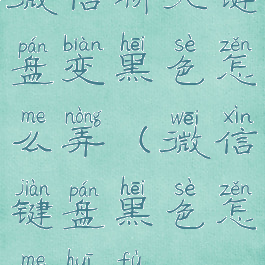 微信聊天键
pán biàn hēi sè zěn
盘变黑色怎
me nòng wēi xìn
么弄（微信
jiàn pán hēi sè zěn
键盘黑色怎
me huī fù